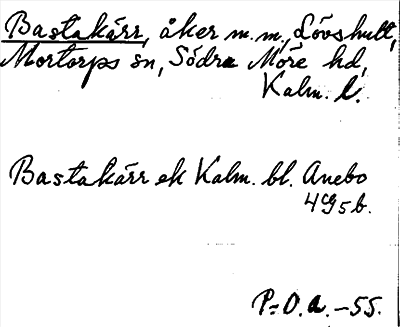 Bastakärr, åker m.m., Lövshult,
Mortorps sn, Södra Möre hd,
Kalm. l.
Bastakärr ek Kalm. bl. Anebo
4G5b.
P.O.a. -55.